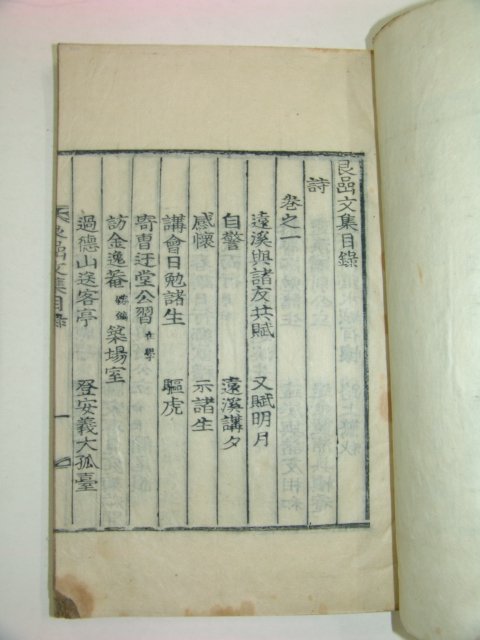 良嵒文集目錄
詩
卷之一
遠溪與諸友共賦 又賦明月
自警 遠溪講夕
感懷 示諸生
講會日勉諸生 驅虎
寄曺迂堂公習
訪金逸菴 築場室
過德山送客亭 登安義大孤臺
文集目錄 一